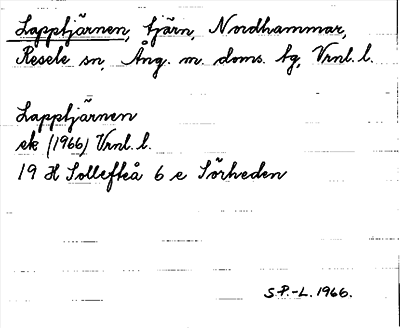 Lapptjärnen, tjärn, Nordhammar,
Resele sn, Ång. m. doms. tg, Vrnl. l.
Lapptjärnen
ek (1966) Vrnl. l.
19 H Sollefteå 6 e Sörheden
S.P.-L. 1966.